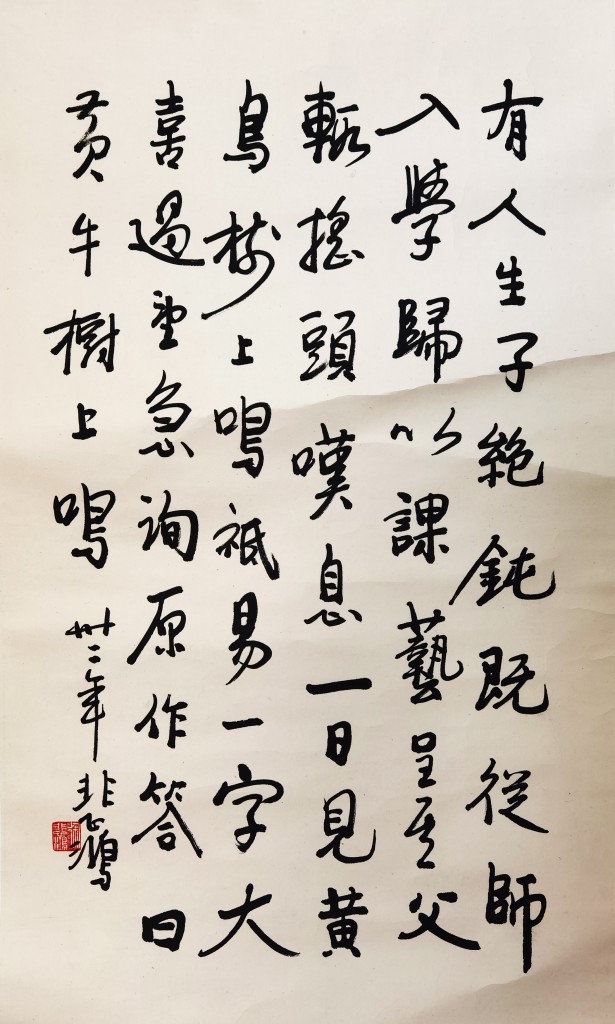 有人生子絶鈍既從師
入學歸以課藝呈其父
輒搖頭嘆息一日見黃
鳥樹上鳴祇易一字大
喜過望急詢原作答曰
黃牛樹上鳴
卅二年 悲鴻